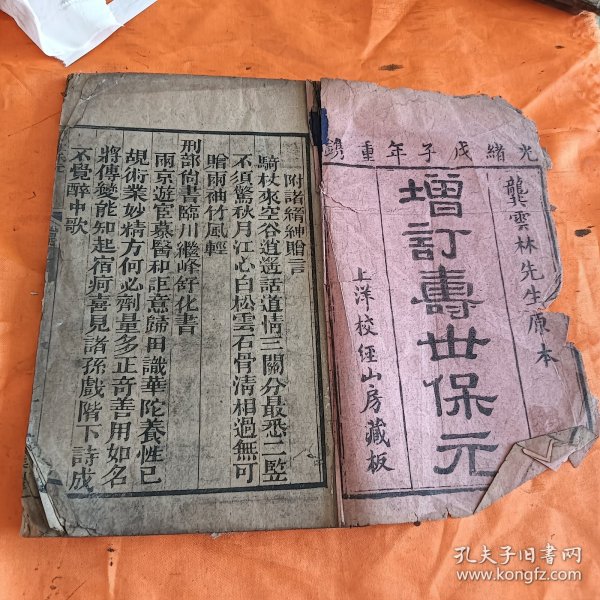 光緒戊子年重鐫
龔雲林先生原本
增訂壽世保元
上洋校經山房藏板
附諸縉紳贈言
騎杖來空谷逍遙話道情三關分最悉二豎
不須驚秋月江心白松雲石骨清相過無可
贈兩袖竹風輕
刑部尙書臨川繼峰舒化書
兩京遊宦慕醫和詎意歸田識華陀養性已
覘術業妙精方何必劑量多正奇善用如名
將傳變能知起宿疴喜見諸孫戲階下詩成
不覺醉中歌
孔夫子旧书网
www.kongfz.com